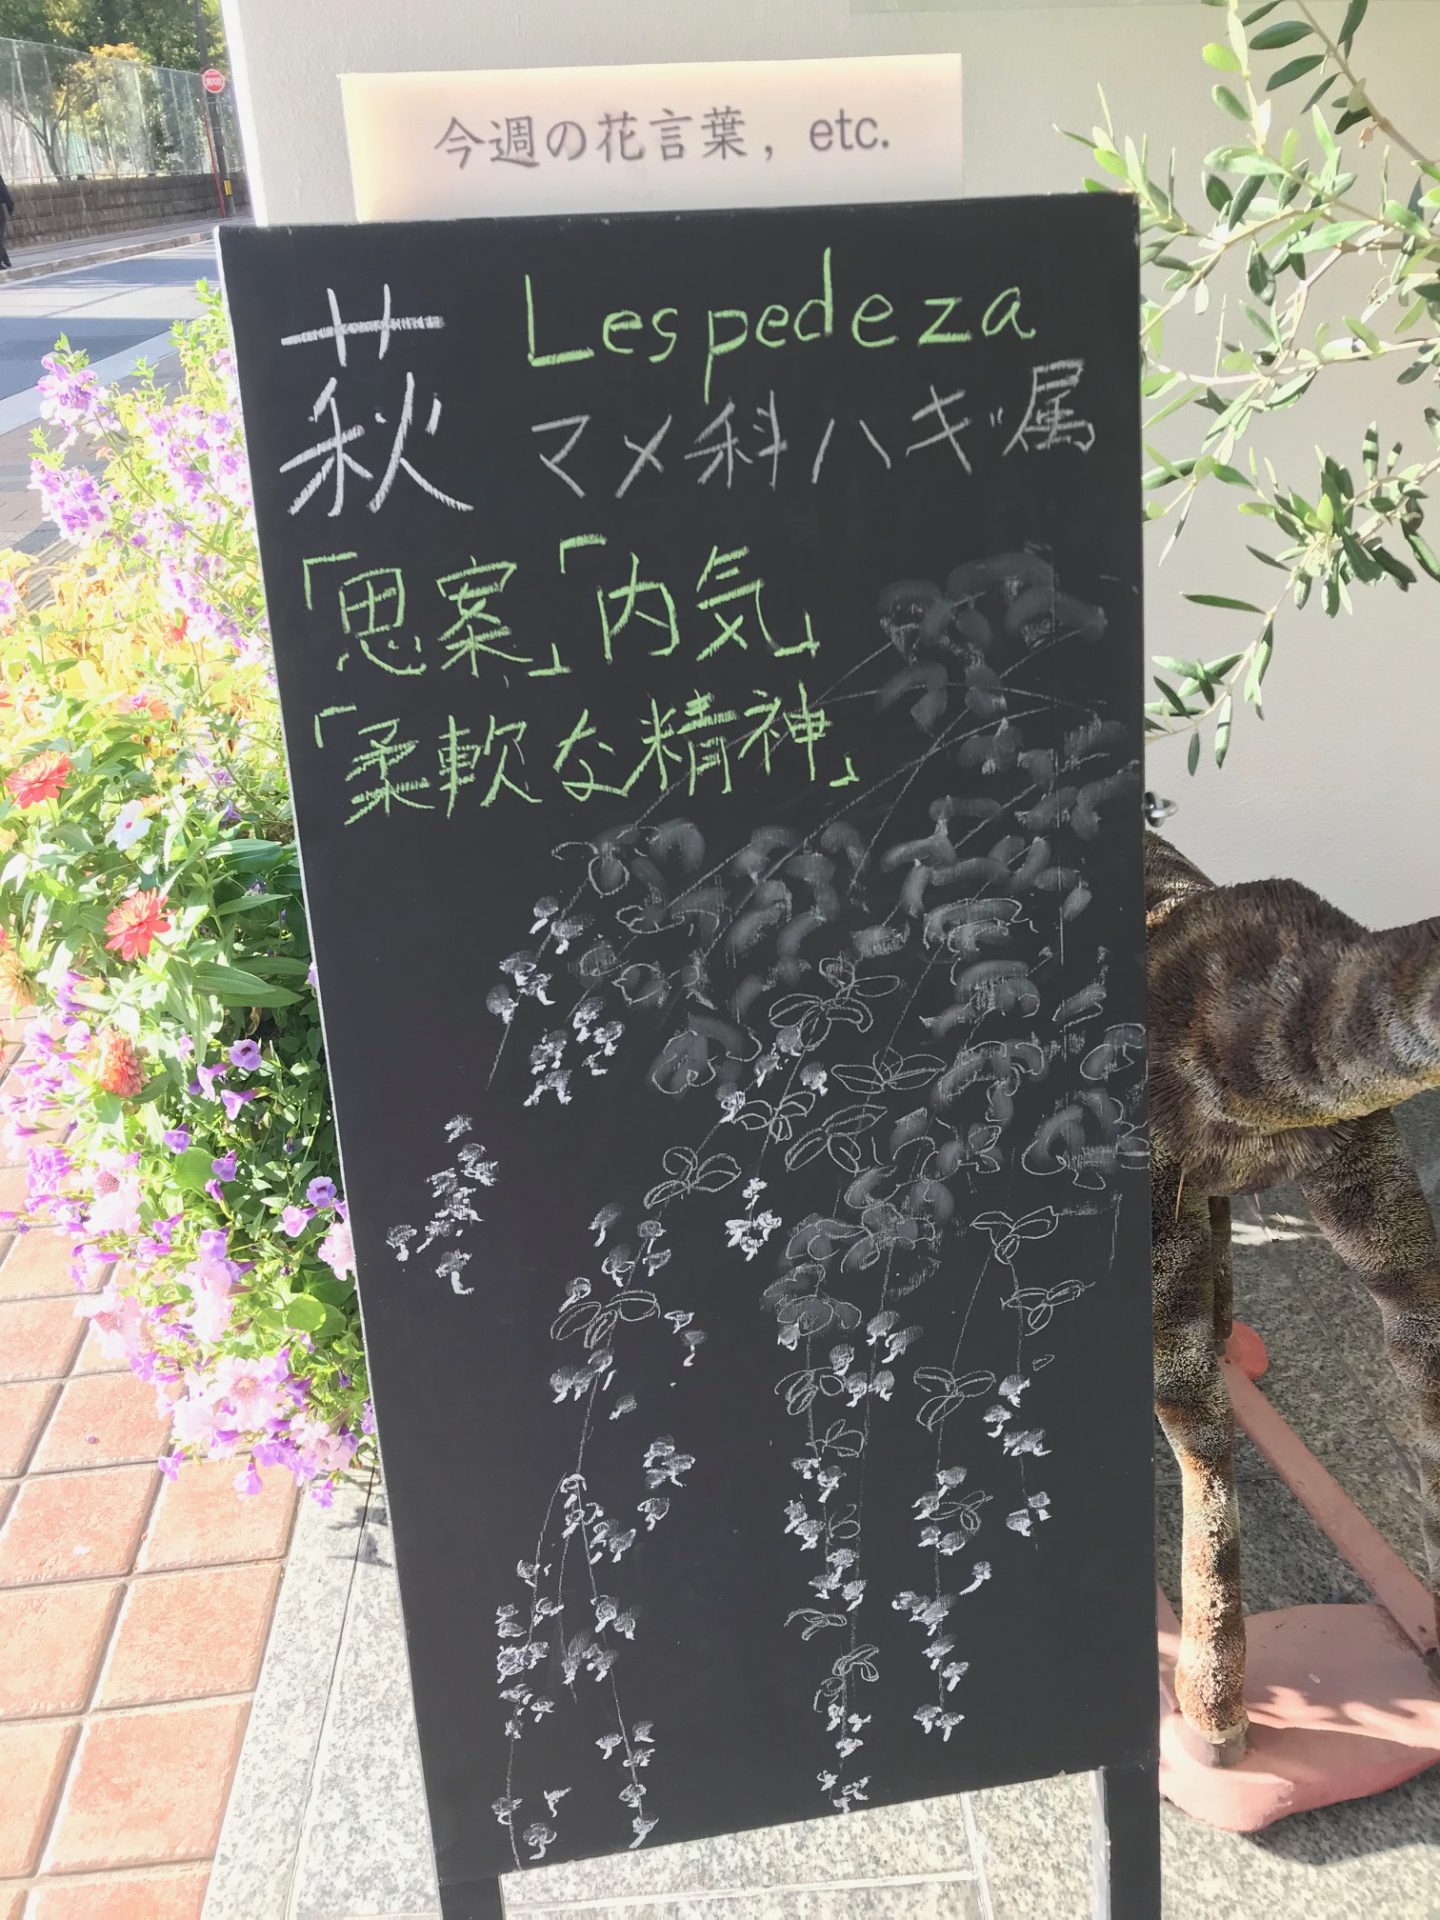 今週の花言葉，etc.
萩 Lespedeza
マメ科ハギ属
「思案」「内気」
「柔軟な精神」